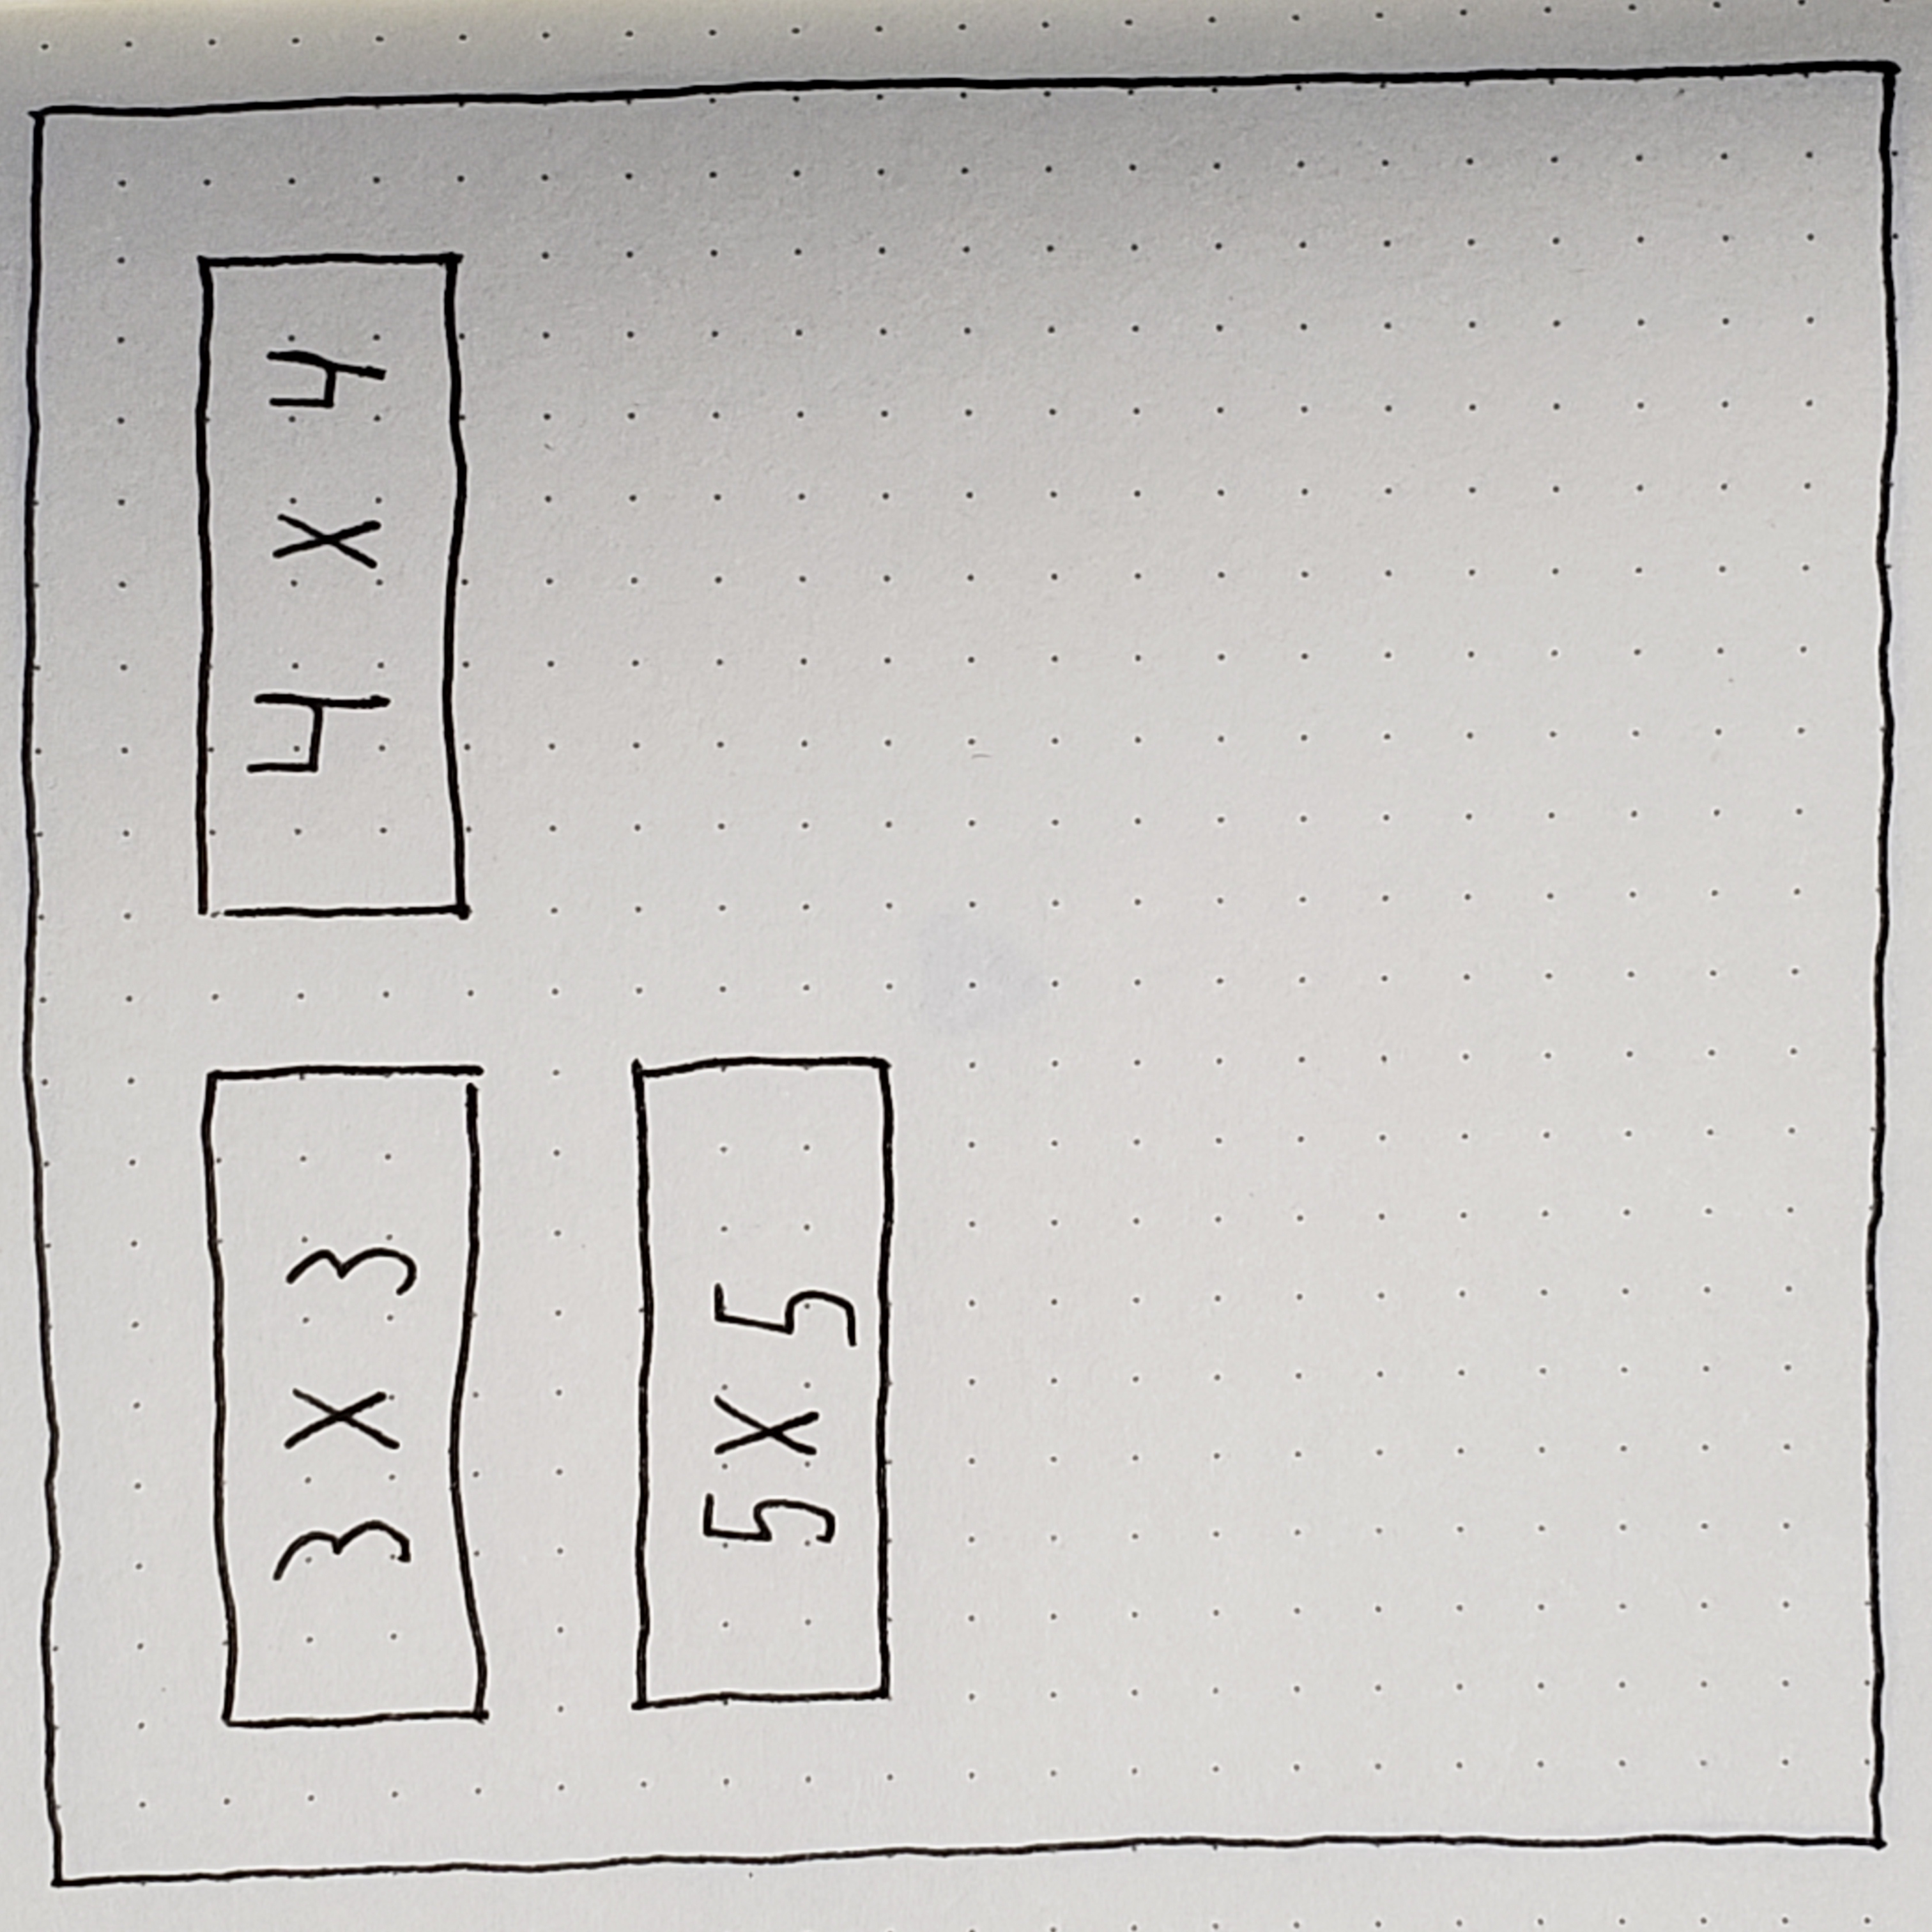 3 X 3
4 X 4
5 X 5